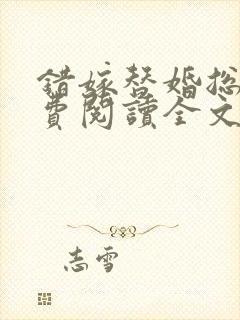 錯嫁替婚总
費閱讀全文
志雪